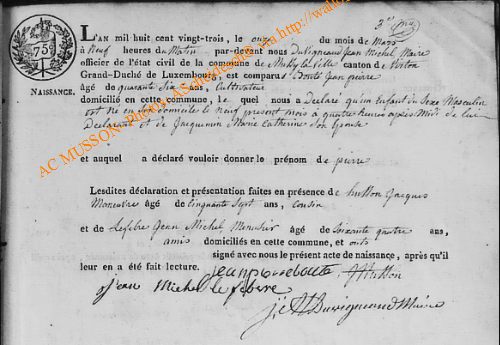 3e
75
NAISSANCE.
L'AN mil huit cent vingt-trois, le onze du mois de Mars
à Neuf heures du Matin par-devant nous Duvigneaud Jean Michel Maire
officier de l'état civil de la commune de Mussy la Ville canton de Virton
Grand-Duché de Luxembourg, est comparu Jean pierre
âgé de quarante Six ans, Cultivateur
domicilié en cette commune, le quel nous a Declaré qu'un Enfant du Sexe Masculin
est Né en domicile le Neuf present mois à quatre heures après Midi de lui
Declarant et de Jacquemin Marie Catherine Son Epouse
et auquel a déclaré vouloir donner le prénom de pierre
Lesdites déclaration et présentation faites en présence de husson Jacques
âgé de Cinquante Sept ans, Cousin
et de Lefebre Jean Michel âgé de Soixante quatre ans,
amis domiciliés en cette commune, et ont
signé avec nous le présent acte de naissance, après qu'il
leur en a été fait lecture.
jean Michel le febvre
Duvigneaud Maire
AC MUSSON - Photos AScherrens via http://wal